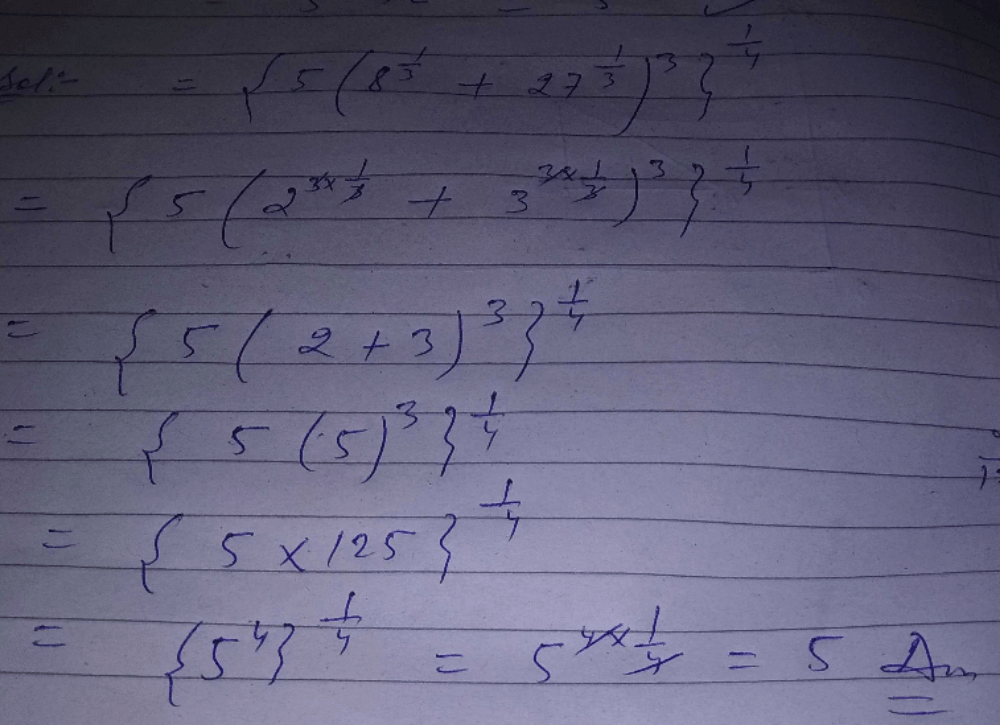 Sol:- = {5(8^1/3 + 27^1/3)^3}^1/4
= {5(2^3×1/3 + 3^3×1/3)^3}^1/4
= {5(2+3)^3}^1/4
= {5(5)^3}^1/4
= {5×125}^1/4
= {5^4}^1/4 = 5^4×1/4 = 5 Ans